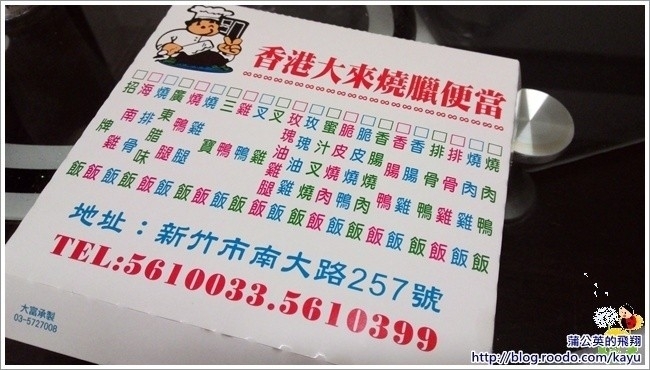 香港大來燒臘便當
招牌飯
海南雞飯
燒排骨飯
廣東腊味飯
燒鴨腿飯
燒雞腿飯
三寶飯
雞鴨飯
叉鴨飯
叉雞飯
玫瑰油雞腿飯
玫瑰油雞飯
蜜汁叉燒飯
脆皮燒肉飯
脆皮燒鴨飯
香腸肉飯
香腸雞飯
香腸鴨飯
排骨飯
排骨飯
燒肉雞飯
燒肉鴨飯
地址：新竹市南大路257號
TEL:5610033.5610399
大富承製
03-5727008
蒲公英的飛翔
http://blog.roodo.com/kayu